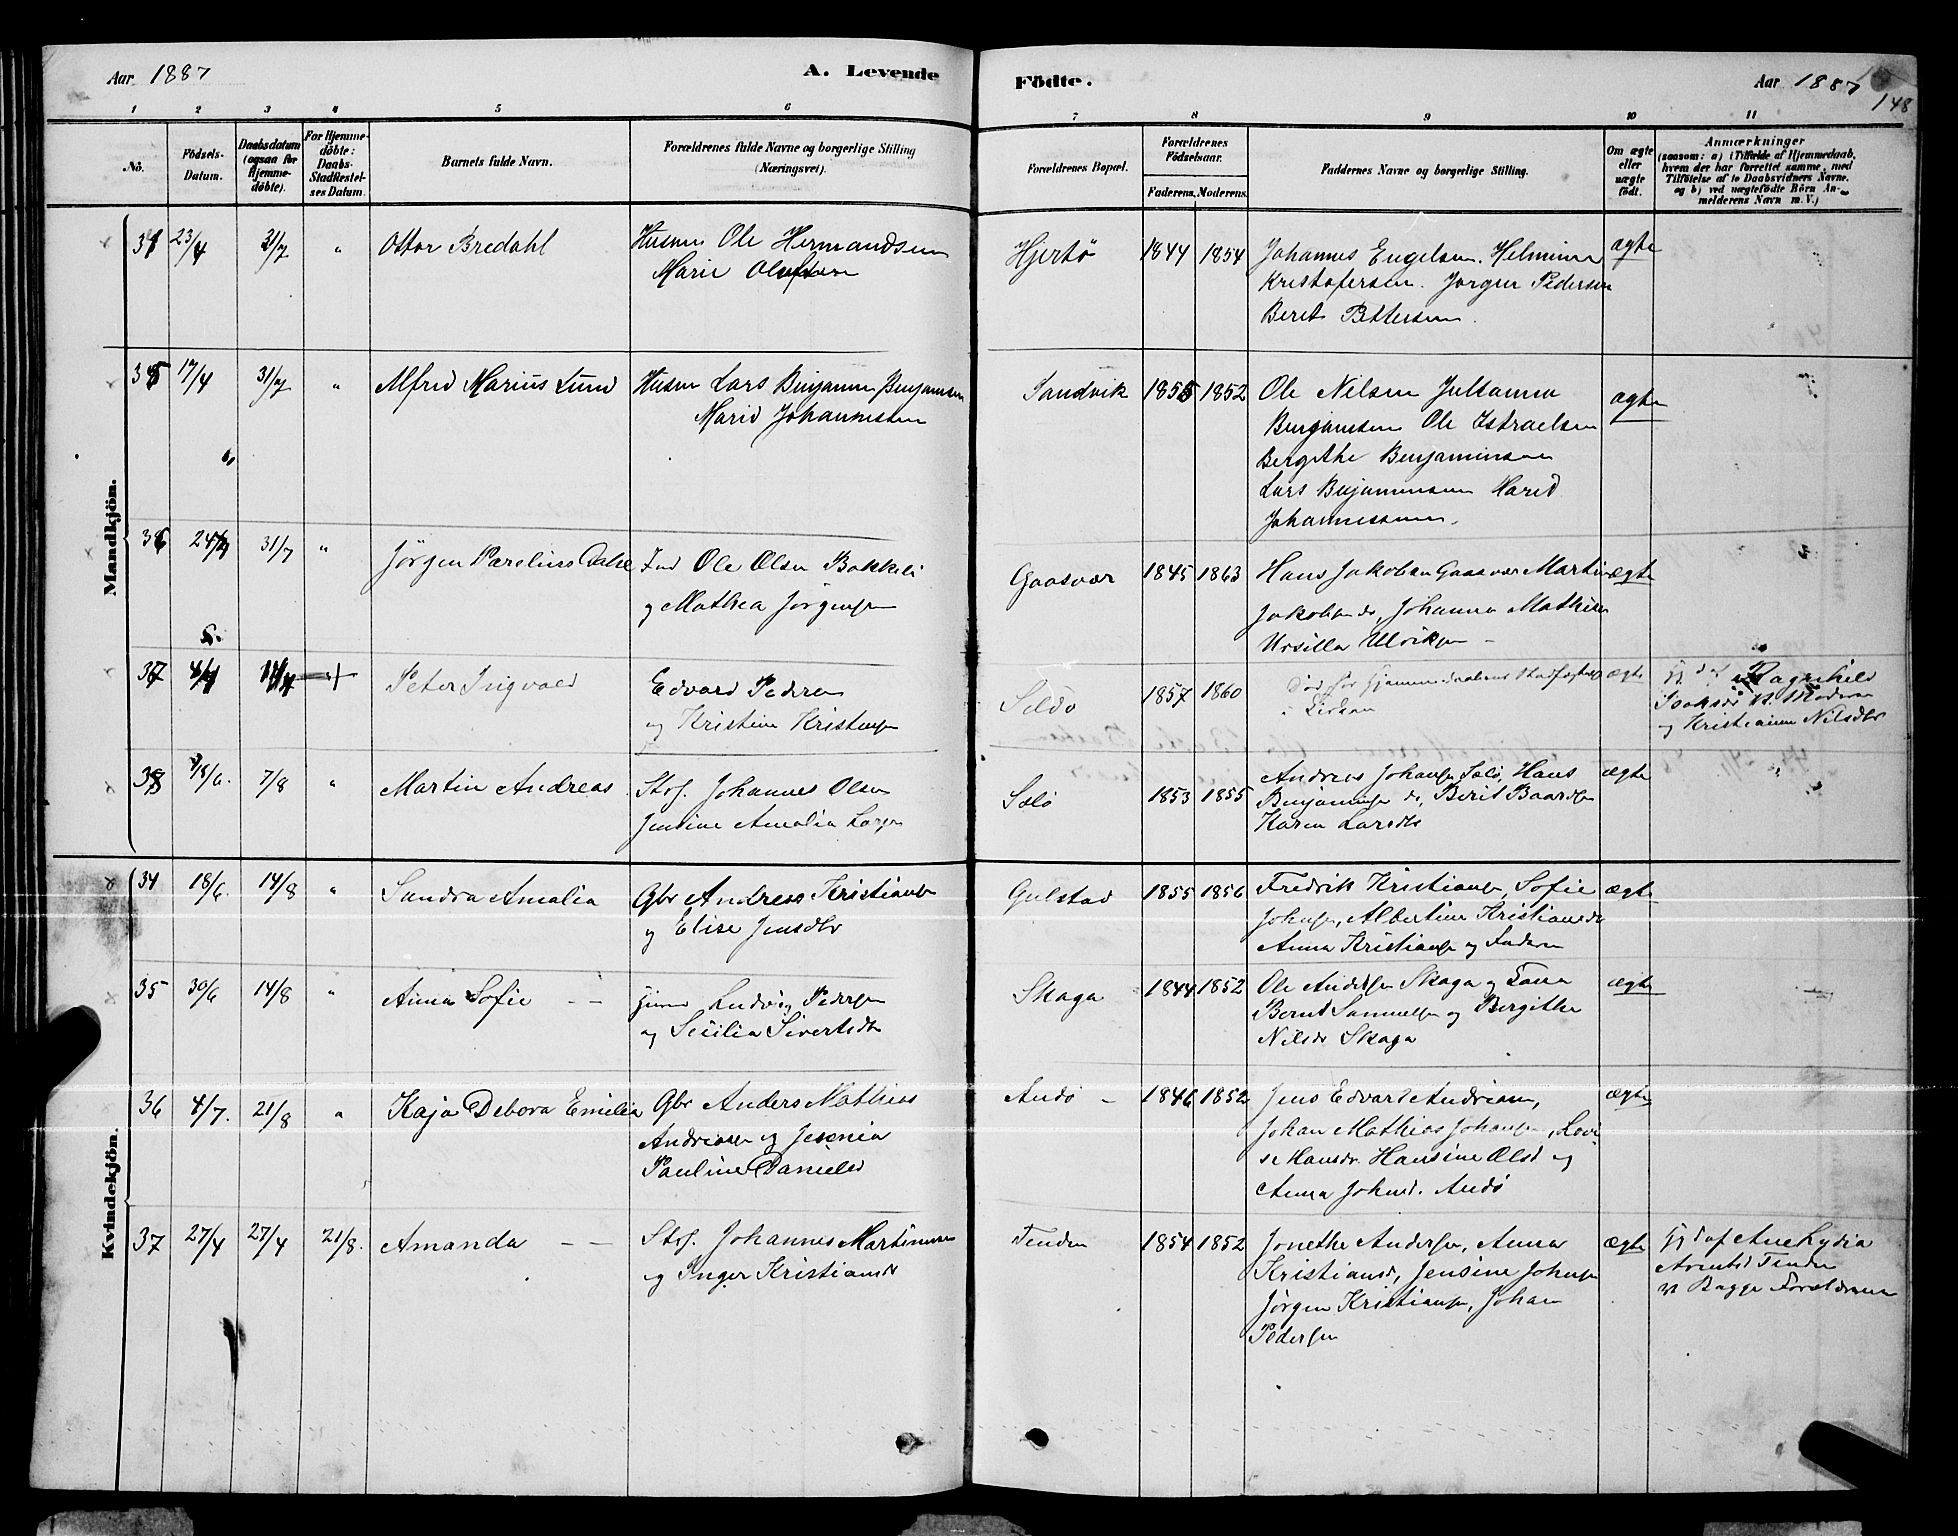 Aar 1887
A. Levende
Födte.
Aar 1887
148
1 2 3 4 5 6 7 8 9 10 11
No.
Födsels-
Datum.
Daabsdatum
(ogsaa for
Hjemme-
döbte).
For Hjemme-
döbte:
Daabs-
Stadfæstel-
ses Datum.
Barnets fulde Navn.
Forældrenes fulde Navne og borgerlige Stilling
(Næringsvei).
Forældrenes Bopæl.
Forældrenes
Födselsaar.
Faderens. Moderens.
Faddernes Navne og borgerlige Stilling.
Om ægte
eller
uægte
födt.
Anmærkninger
(saasom: a) i Tilfælde af Hjemmedaab,
hvem der har forrettet samme, med
Tilföielse af to Daabsvidners Navne,
og b) ved uægtefödte Börn An-
melderens Navn m. V.)
Mandkjön.
23/4 31/7 " Ottar Bredahl
Husm Ole Hermandsen
Marie
Hjertö 1844 1854
Johannes Engelsen. Helmine
Kristofersen. Jørgen Pedersen
Berit Pettersen.
ægte
35 17/4 31/7 " Alfred Marius Lund
Husm Lars Benjamin Benjamsen
Marid Johannesten
Sandvik 1855 1852
Ole Nilsen Julianna
Benjamsen Ole Istraelsen
Bergithe Benjaminsen
Lars Benjaminsen Marid
Johannessen.
ægte
36 24/4 31/7 " Jörgen Parelius Dahl
Ind Ole Olsen Bakkeli
og Mathea Jørgensen
Gaasvær 1845 1863
Hans Jakobsen Gaasvær Martin
Jakobsen do, Johanna Mathisen
Ursilla Ulriksen
ægte
37 Peter Ingvald
Edvard Pedersen
og Kristine Kristensen
Sildö 1857 1860
Död för Hjemmedaabens Stadfæstelse
i Kirken
ægte
Hjd af Ragnhild
Isaksdr. v. Moderen
og Kristianne Nilsdtr
38 18/6. 7/8 " Martin Andreas
Strf. Johannes Olsen
Jensine Amalia Larsen
Solö 1853 1855
Andreas Johansen Solö, Hans
Benjaminsen do, Berit Baardsen
Karen Larsdtr
ægte
Kvindekjön.
34 18/6. 14/8 " Sandra Amalia
Gbr Andreas Kristiansen
og Elise Jensdtr
Gulstad 1855 1856
Fredrik Kristiansen, Sofie
Johnsen, Albertine Kristiansdr
Anna Kristiansen og Faderen
ægte
35 30/6 14/8 " Anna Sofie
Ludvig Pedersen
og Sesilia Sivertsdtr
Skaga 1844 1852
Ole Andersen Skaga og Kona
Bernt Samuelsen og Bergithe
Nilsdr Skaga
ægte
36 4/7. 21/8 " Kaja Debora Emilia
Gbr Anders Mathias
Andreasen og Jesenia
Pauline Danielsd
Andö 1846 1852
Jens Edvard Andreasen,
Johan Mathias Johansen, Lovi
se Hansdr. Hansine Olsd og
Anna Johnsd. Andö
ægte
37 27/4 27/4 21/8. Amanda
Strf. Johannes Martinusen
og Inger Kristiansdr
Tenden 1854 1852
Jonethe Andersen, Anna
Kristiansd, Jensine Johnsen
Jörgen Kristiansen, Johan
Pedersen
ægte
Hjd af Ane Lydia
Arentsd Tenden
v. Begge Forældrene